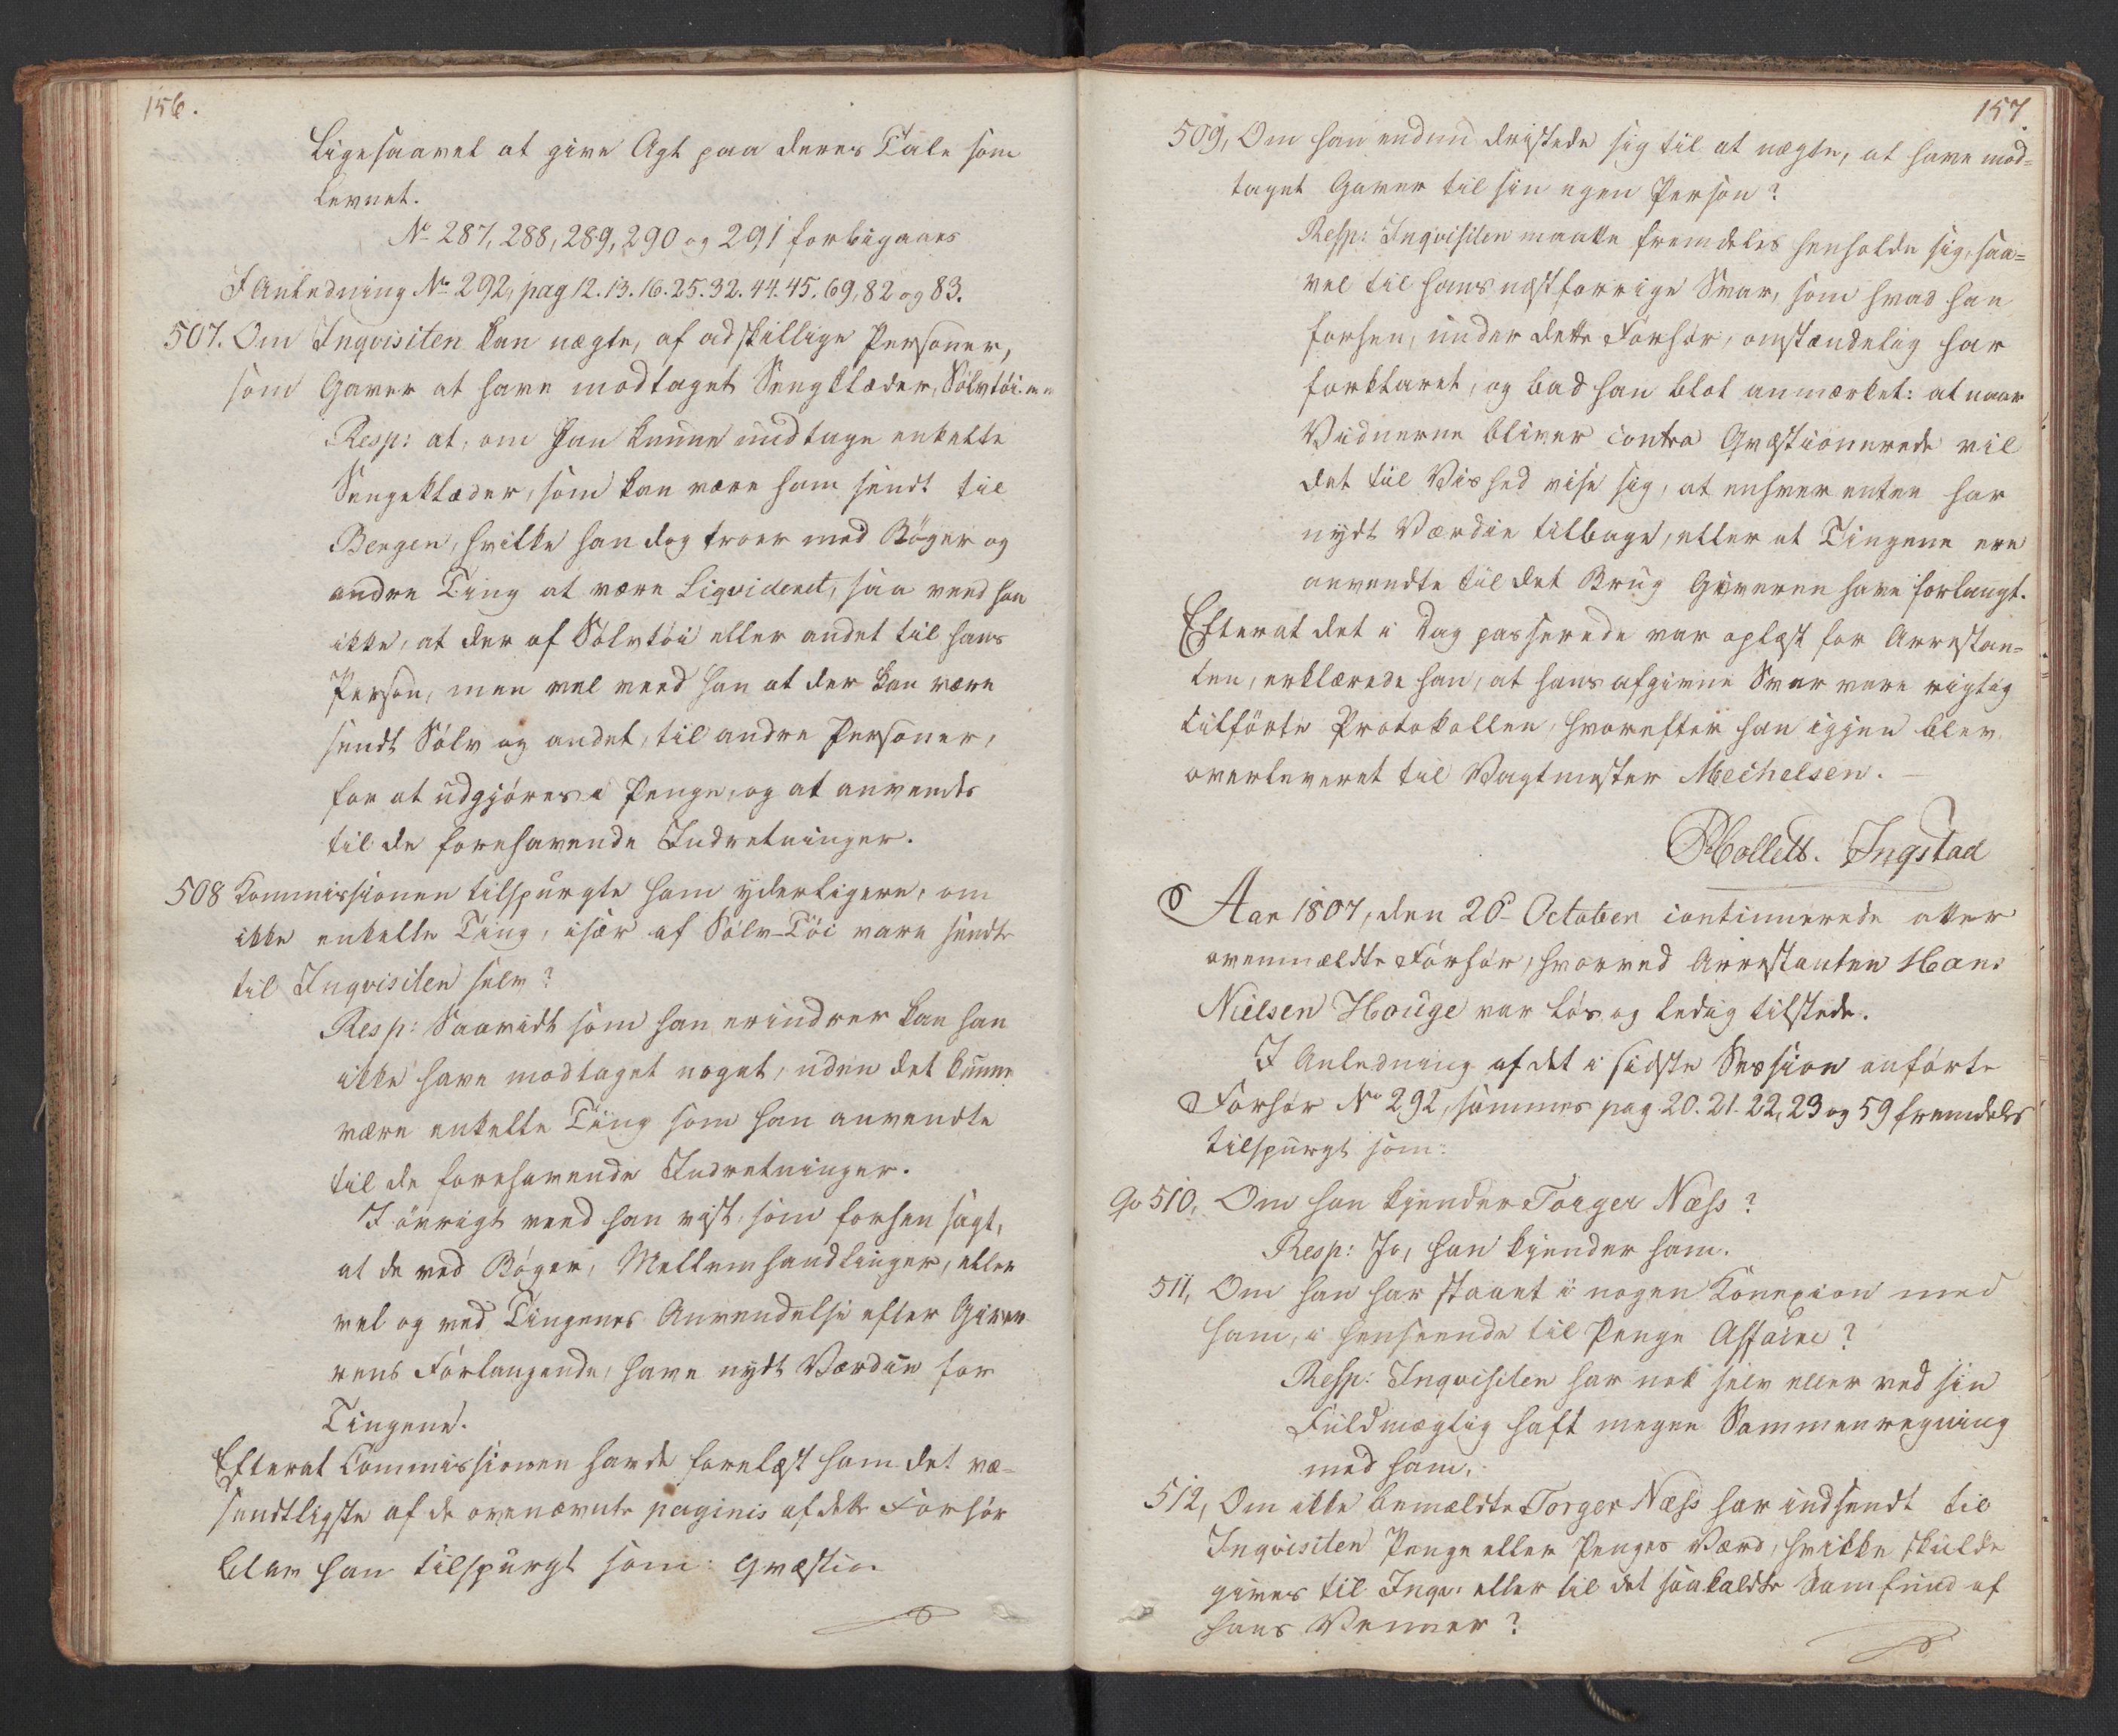 156.
Ligesaavel at give Agt paa deres Tale som
Levnet.
No 287, 288, 289, 290 og 291 forbigaaes
I Anledning No 292, pag 12. 13. 16. 25. 32. 44. 45. 69, 82 og 83.
507. Om Inqvisiten kan nægte, af adskillige Personer,
som Gaver at have modtaget Sengklæder, Sölvtöi
Resp: at, om han kunne undtage enkelte
Sengeklæder, som kan være ham sendt til
Bergen, hvilke han dog troer med Bøger og
andre Ting at være Liqvideret, saa veed han
ikke, at der af Sölvtöi eller andet til hans
Person, men vel veed han at der kan være
sendt Sölv og andet, til andre Personer,
for at udgjøres i Penge, og at anvendes
til de forehavende Indretninger.
508 Kommissionen tilspurgte ham yderligere, om
ikke enkelte Ting, især af Sölv-Töi vare sendt
til Inqvisiten selv?
Resp: Saavidt som han erindrer kan han
ikke have modtaget noget, uden det kunne
være enkelte Ting som han anvendte
til de forehavende Indretninger.
I övrigt veed han vist, som forhen sagt,
at de ved Bøger, Mellemhandlinger, eller
vel og ved Tingenes Anvendelse efter Give-
rens Forlangende, have nydt Værdie for
Tingene.
Efterat Commissionen havde forelæst ham det væ-
sendtligste af de ovenævnte paginis af dette Forhör
blev han tilspurgt som: Qvæstio
157.
509, Om han endnu dristede sig til at nægte, at have mod-
taget Gaver til sin egen Person?
Resp: Inqvisiten maatte fremdeles henholde sig, saa-
vel til hans næstforrige Svar, som hvad han
forhen, under dette Forhör, omstændelig har
forklaret, og bad han blot anmærket: at naar
Vidnerne bliver contra Qvæstionerede vil
det til Vished vise sig, at enhver enten har
nydt Værdie tilbage, eller at Tingene ere
anvendte til det Brug Giveren have forlangt.
Efterat det i Dag passerede var oplæst for Arrestan-
ten, erklærede han, at hans afgivne Svar vare rigtig
tilförte Protokollen, hvorefter han igjen blev
overleveret til Vagtmester Mechelsen.
Collett. Ingstad
Aar 1807, den 26 October continuerede atter
ovenmældte Forhör, hvorved Arrestanten Hans
Nielsen Houge var løs og ledig tilstede.
I Anledning af det i sidste Session anförte
Forhör No 292, sammes pag. 20. 21. 22, 23 og 59 fremdeles
tilspurgt som:
Qv 510, Om han kjender Torger Næss?
Resp: Jo, han kjender ham.
511, Om han har staaet i nogen Konexion med
ham, i henseende til Penge Affaire?
Resp: Inqvisiten har nok selv eller ved sin
Fuldmægtig haft megen Sammenregning
med ham.
512, Om ikke bemældte Torger Næss har indsendt til
Inqvisiten Penge eller Penges Værd, hvilke skulde
gives til Inqv: eller til det saakaldte Samfund af
hans Venner?